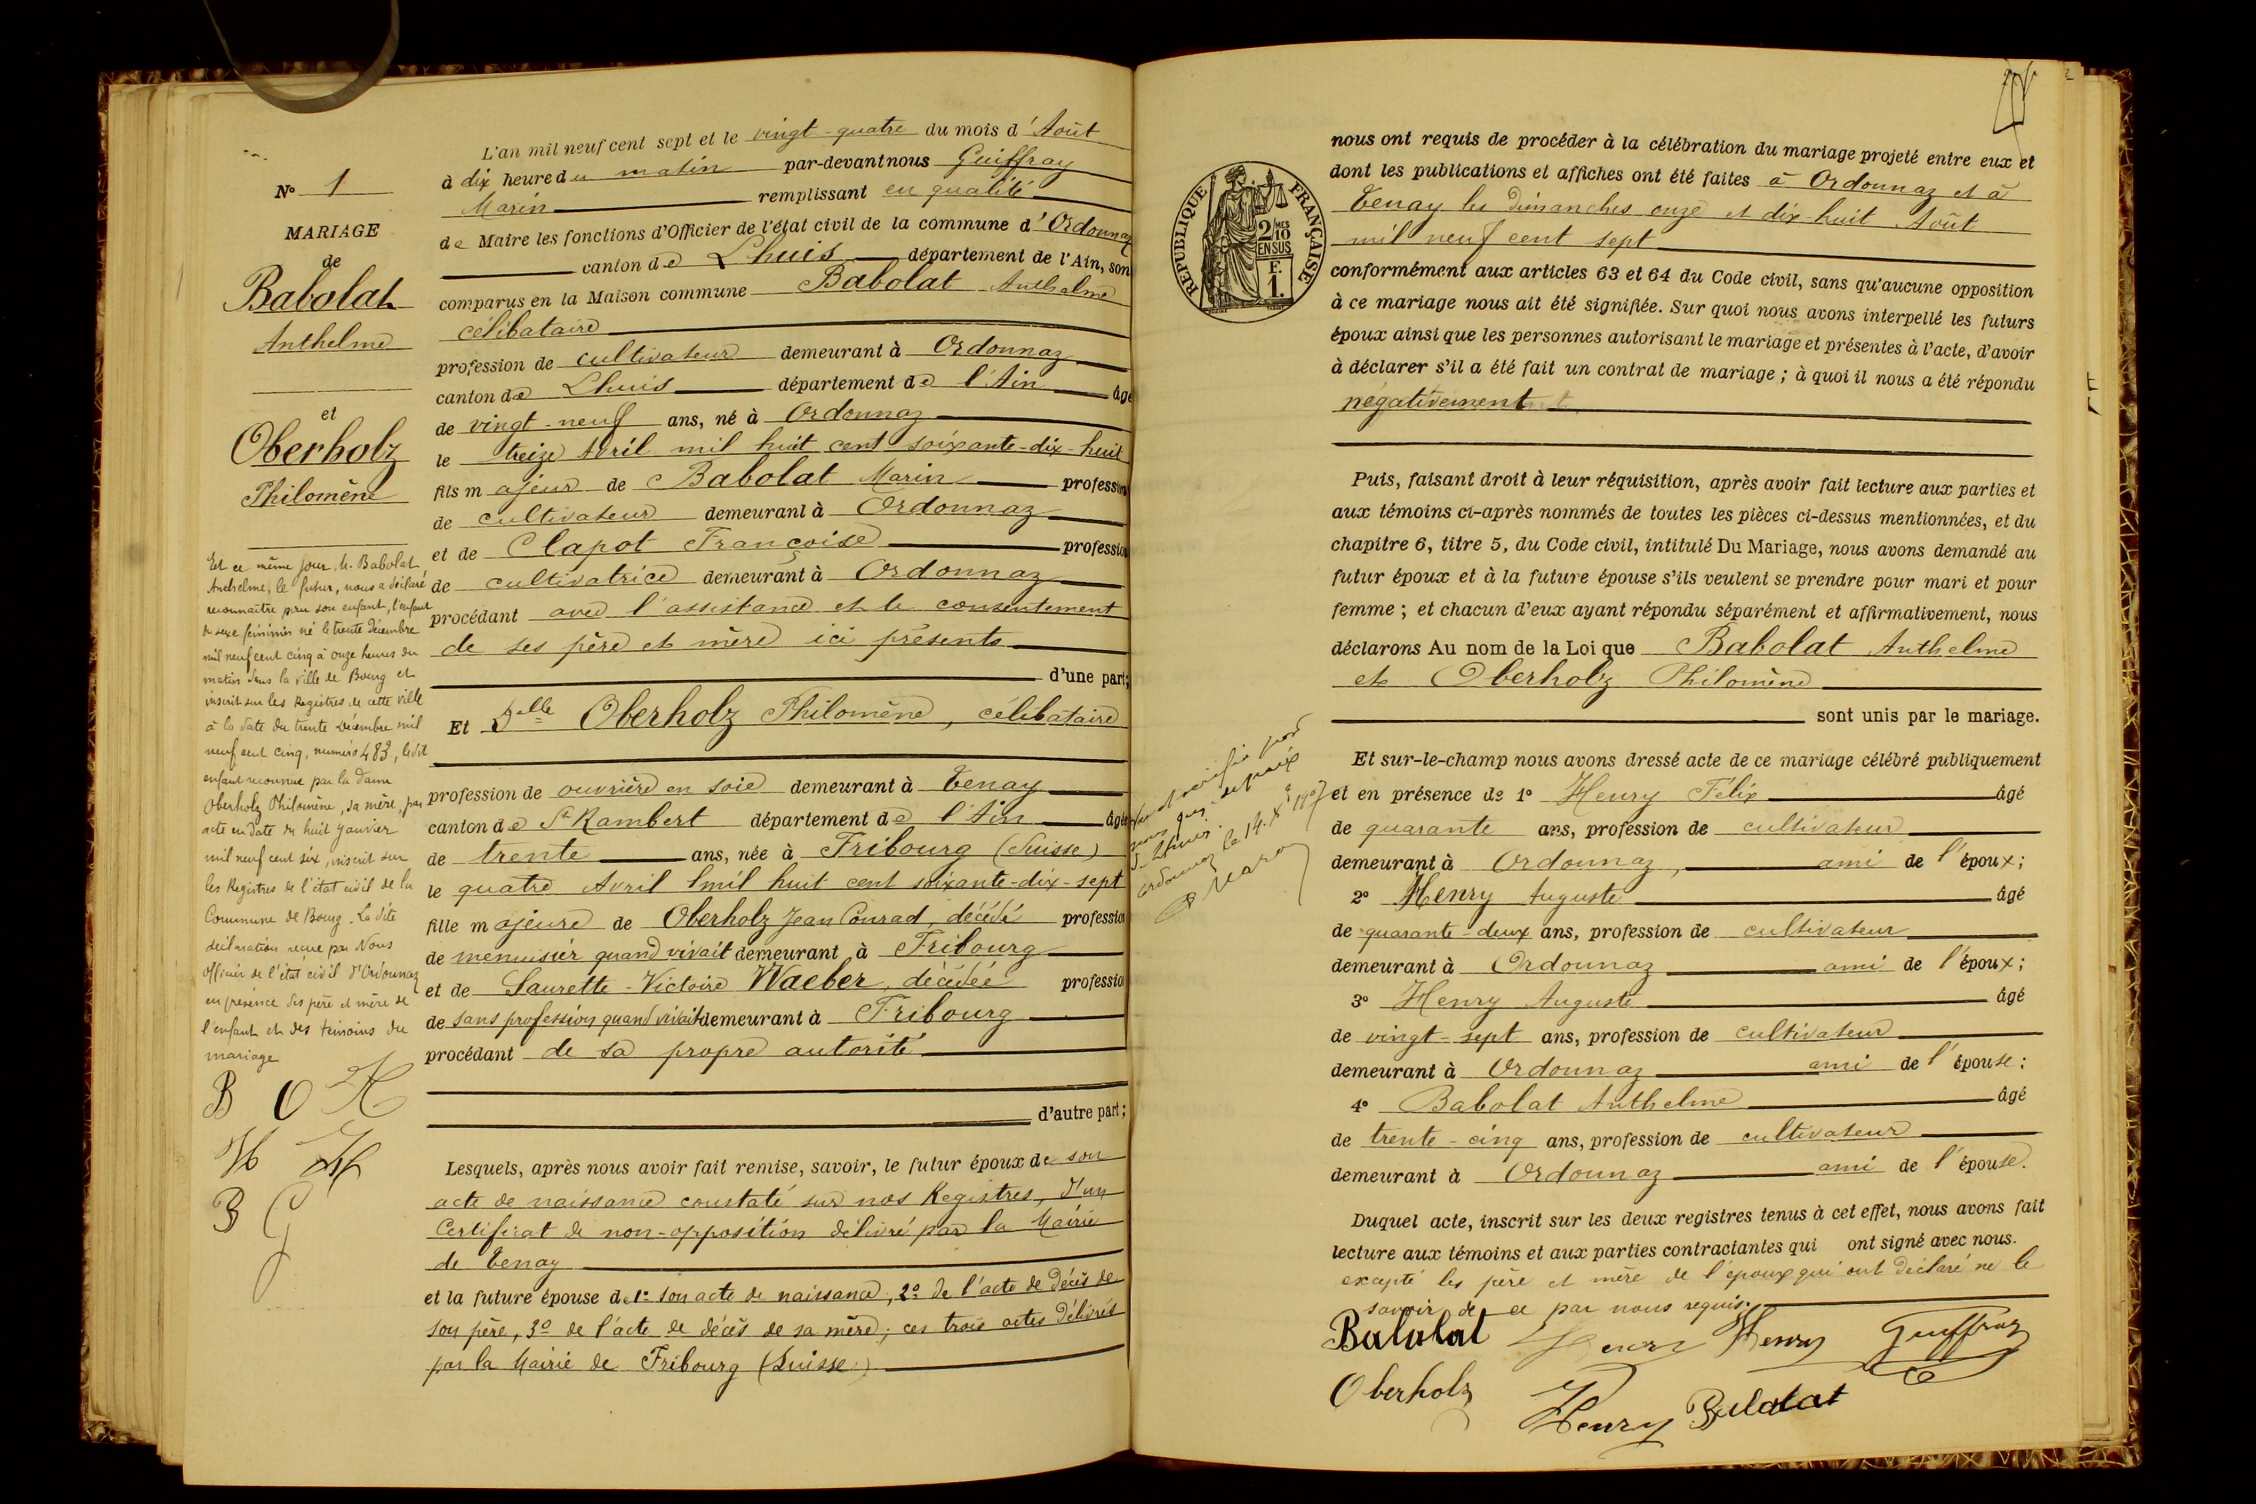 N° 1
MARIAGE
de
Babolat
Anthelme
et
Oberholz
Philomène
Et ce même jour M. Babolat
Anthelme, le futur, nous a déclaré
reconnaître pour son enfant, l'enfant
de sexe féminin né le trente Décembre
mil neuf cent cinq à onze heures du
matin dans la ville de Bourg et
inscrit sur les Registres de cette ville
à la date du trente Décembre mil
neuf cent cinq, numéro 483, ledit
enfant reconnue par la dame
Oberholz Philomène, sa mère, par
acte en date du huit Janvier
mil neuf cent six, inscrit sur
les Registres de l'état civil de la
Commune de Bourg. La dite
déclaration reçue par Nous
Officier de l'état civil d'Ordonnaz
en présence des père et mère de
l'enfant et des témoins du
mariage
B O H
H H
B G
L'an mil neuf cent sept et le vingt-quatre du mois d'Août
à dix heure du matin par-devant nous Guiffray
Marin remplissant en qualité
de Maire les fonctions d'Officier de l'état civil de la commune d'Ordonnaz
canton de Lhuis département de l'Ain, son
comparus en la Maison commune Babolat Anthelme
célibataire
profession de cultivateur demeurant à Ordonnaz
canton de Lhuis département de l'Ain âgé
de vingt-neuf ans, né à Ordonnaz
le treize Avril mil huit cent soixante-dix-huit
fils majeur de Babolat Marin profession
de cultivateur demeurant à Ordonnaz
et de Clapot Françoise profession
de cultivatrice demeurant à Ordonnaz
procédant avec l'assistance et le consentement
de ses père et mère ici présents
d'une part;
Et Delle Oberholz Philomène, célibataire
profession de ouvrière en soie demeurant à Tenay
canton de St Rambert département de l'Ain âgée
de trente ans, née à Fribourg (Suisse)
le quatre Avril mil huit cent soixante-dix-sept
fille majeure de Oberholz Jean Conrad, décédé profession
de menuisier quand vivait demeurant à Fribourg
et de Laurette-Victoire Waeber, décédée profession
de sans profession quand vivait demeurant à Fribourg
procédant de sa propre autorité
d'autre part;
Lesquels, après nous avoir fait remise, savoir, le futur époux de son
acte de naissance constaté sur nos Registres, d'un
Certificat de non-opposition délivré par la Mairie
de Tenay
et la future épouse de 1° son acte de naissance, 2° de l'acte de décès de
son père, 3° de l'acte de décès de sa mère; ces trois actes délivrés
par la Mairie de Fribourg (Suisse)
REPUBLIQUE FRANÇAISE
2/10 MES
EN SUS
F.
1.
vérifié par
nous juge de paix
de Lhuis
Ordonnaz le 14. X 1907
nous ont requis de procéder à la célébration du mariage projeté entre eux et
dont les publications et affiches ont été faites à Ordonnaz et à
Tenay les dimanches onze et dix-huit Août
mil neuf cent sept
conformément aux articles 63 et 64 du Code civil, sans qu'aucune opposition
à ce mariage nous ait été signifiée. Sur quoi nous avons interpellé les futurs
époux ainsi que les personnes autorisant le mariage et présentes à l'acte, d'avoir
à déclarer s'il a été fait un contrat de mariage; à quoi il nous a été répondu
négativement
Puis, faisant droit à leur réquisition, après avoir fait lecture aux parties et
aux témoins ci-après nommés de toutes les pièces ci-dessus mentionnées, et du
chapitre 6, titre 5, du Code civil, intitulé Du Mariage, nous avons demandé au
futur époux et à la future épouse s'ils veulent se prendre pour mari et pour
femme; et chacun d'eux ayant répondu séparément et affirmativement, nous
déclarons Au nom de la Loi que Babolat Anthelme
et Oberholz Philomène
sont unis par le mariage.
Et sur-le-champ nous avons dressé acte de ce mariage célébré publiquement
et en présence de 1° Henry Félix âgé
de quarante ans, profession de cultivateur
demeurant à Ordonnaz, ami de l'époux;
2° Henry Auguste âgé
de quarante-deux ans, profession de cultivateur
demeurant à Ordonnaz ami de l'époux;
3° Henry Auguste âgé
de vingt-sept ans, profession de cultivateur
demeurant à Ordonnaz ami de l'épouse:
4° Babolat Anthelme âgé
de trente-cinq ans, profession de cultivateur
demeurant à Ordonnaz ami de l'épouse.
Duquel acte, inscrit sur les deux registres tenus à cet effet, nous avons fait
lecture aux témoins et aux parties contractantes qui ont signé avec nous.
excepté les père et mère de l'époux qui ont déclaré ne le
savoir de ce par nous requis.
Babolat Henry Henry Guiffray
Oberholz Henry Babolat